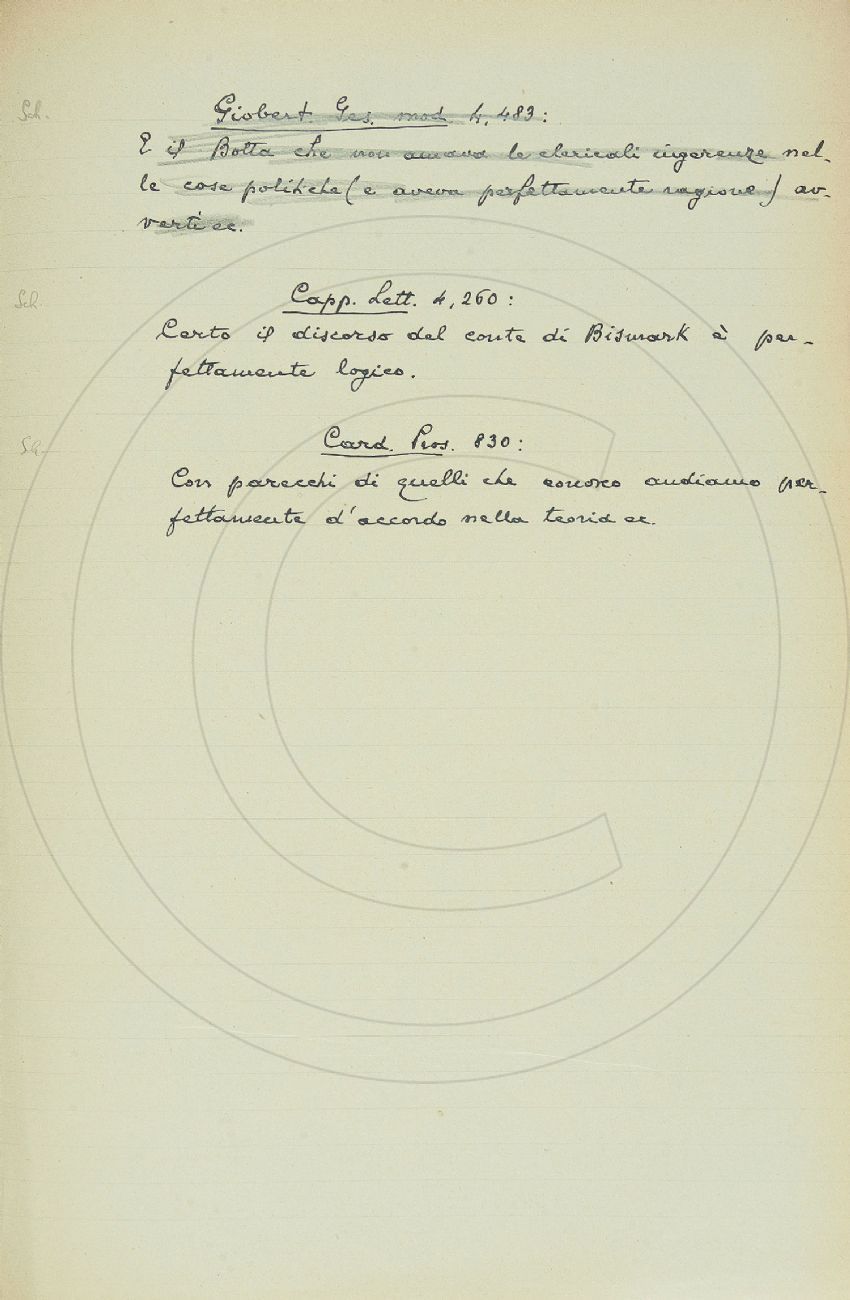 Sch.
Giobert. Ges. mod. 4, 483:
E il Botta che non amava le clericali ingerenze nel-
le cose politiche (e aveva perfettamente ragione) av-
vertì ec.
Sch.
Capp. Lett. 4, 260:
Certo il discorso del conte di Bismark è per-
fettamente logico.
Sch.
Card. Pros. 830:
Con parecchi di quelli che conosco andiamo per-
fettamente d'accordo nella teoria ec.